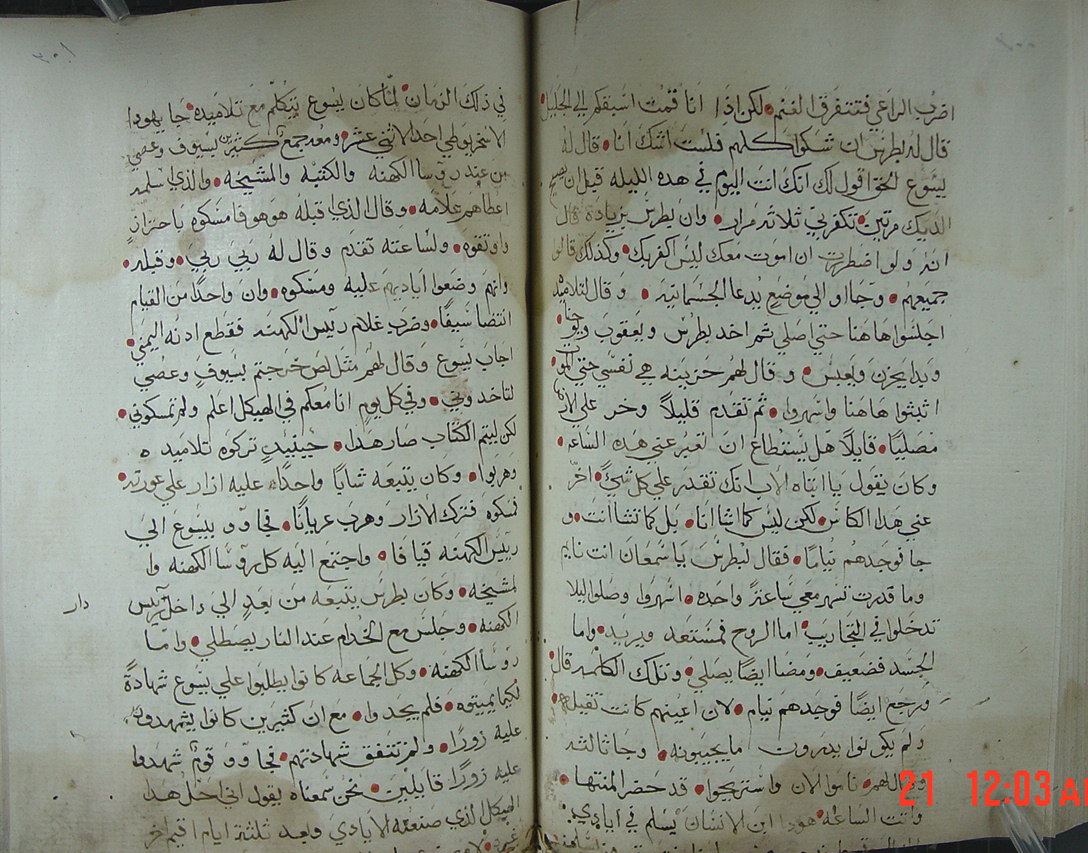 اضرب الراعي فتتفرق الغنم لكن اذا انا قمت اسبقكم الي الجليل
قال له بطرس ان شكوا كلهم فلست اشك انا قال له
يسوع الحق اقول لك انك انت اليوم في هده الليله قبل ان يصيح
الديك مرتين تنكرني ثلاثه مرار وان بطرس بزيادة قال
انه ولو اضطررت ان اموت معك ليس اكفر بك وكذلك قالو
جميعهم وجاوا الي موضع يدعا الجسمانيه وقال لتلاميذه
اجلسوا هاهنا حتي اصلي ثم اخد بطرس ويعقوب ويوحنا
وبدا يحزن ويعبس وقال لهم حزينه هي نفسي حتي الموت
اثبثوا هاهنا واسهروا ثم تقدم قليلاً وخر علي الارض
مصليًا قايلاً هل يستطاع ان تعبر عني هده الساعه
وكان يقول يا ابتاه الاب انك تقدر علي كل شيً اخر
عني هدا الكاس لكن ليس كما اشا انا بل كما تشا انت و
جا فوجدهم نيامًا فقال لبطرس يا سمعان انت نايم
وما قدرت تسهر معي ساعة واحده اسهروا وصلوا ليلا
تدخلوا في التجاريب اما الروح فمستعد ويريد واما
الجسد فضعيف ومضا ايضًا يصلي وتلك الكلمه قال
ورجع ايضًا فوجدهم نيام لان اعينهم كانت ثقيله
ولم يكونوا يدرون ما يجيبونه وجا ثالثه
وقال لهم ناموا الان واستريحوا قد حضر المنتها
واتت الساعه هودا ابن الانسان يسلم في ايادي
في ذلك الزمان لما كان يسوع يتكلم مع تلاميده جا يهودا
الاسخريوطي احد الاثني عشر ومعه جمع كثير بسيوف وعصي
من عند روسا الكهنه والكتبه والمشيخه والذي اسلمه
اعطاهم علامه وقال الذي اقبله هو هو فامسكوه باحتراز
واوثقوه ولساعته تقدم وقال له ربي ربي وقبله
وانهم وضعوا اياديهم عليه ومسكوه وان واحدًا من القيام
انتضا سيفًا وضرب غلام رييس الكهنه فقطع ادنه اليمني
اجاب يسوع وقال لهم مثل لص خرجتم بسيوف وعصي
لتاخدوني وفي كل يوم انا معكم في الهيكل اعلم ولم تمسكوني
لكن ليتم الكتاب صار هدا حينيد تركوه تلاميده
وهربوا وكان يتبعه شابًا واحدًا عليه ازار علي عورته
فمسكوه فترك الازار وهرب عريانًا فجاوو بيسوع الي
رييس الكهنه قيافا واجتمع اليه كل روسا الكهنه وا
لمشيخه وكان بطرس يتبعه من بعد الي داخل رييس
دار
الكهنه وجلس مع الخدام عند النار يصطلي واما
روسا الكهنه وكل الجماعه كانوا يطلبوا علي يسوع شهادةً
لكيما يميتوه فلم يجدوا مع ان كثيرين كانوا يشهدون
عليه زورًا ولم تتفق شهادتهم فجاوو قوم شهدوا
عليه زورًا قايلين نحن سمعناه يقول اني احل هدا
الهيكل الذي صنعته الايادي وبعد ثلثة ايام اقيم اخر
21 12:03 AM